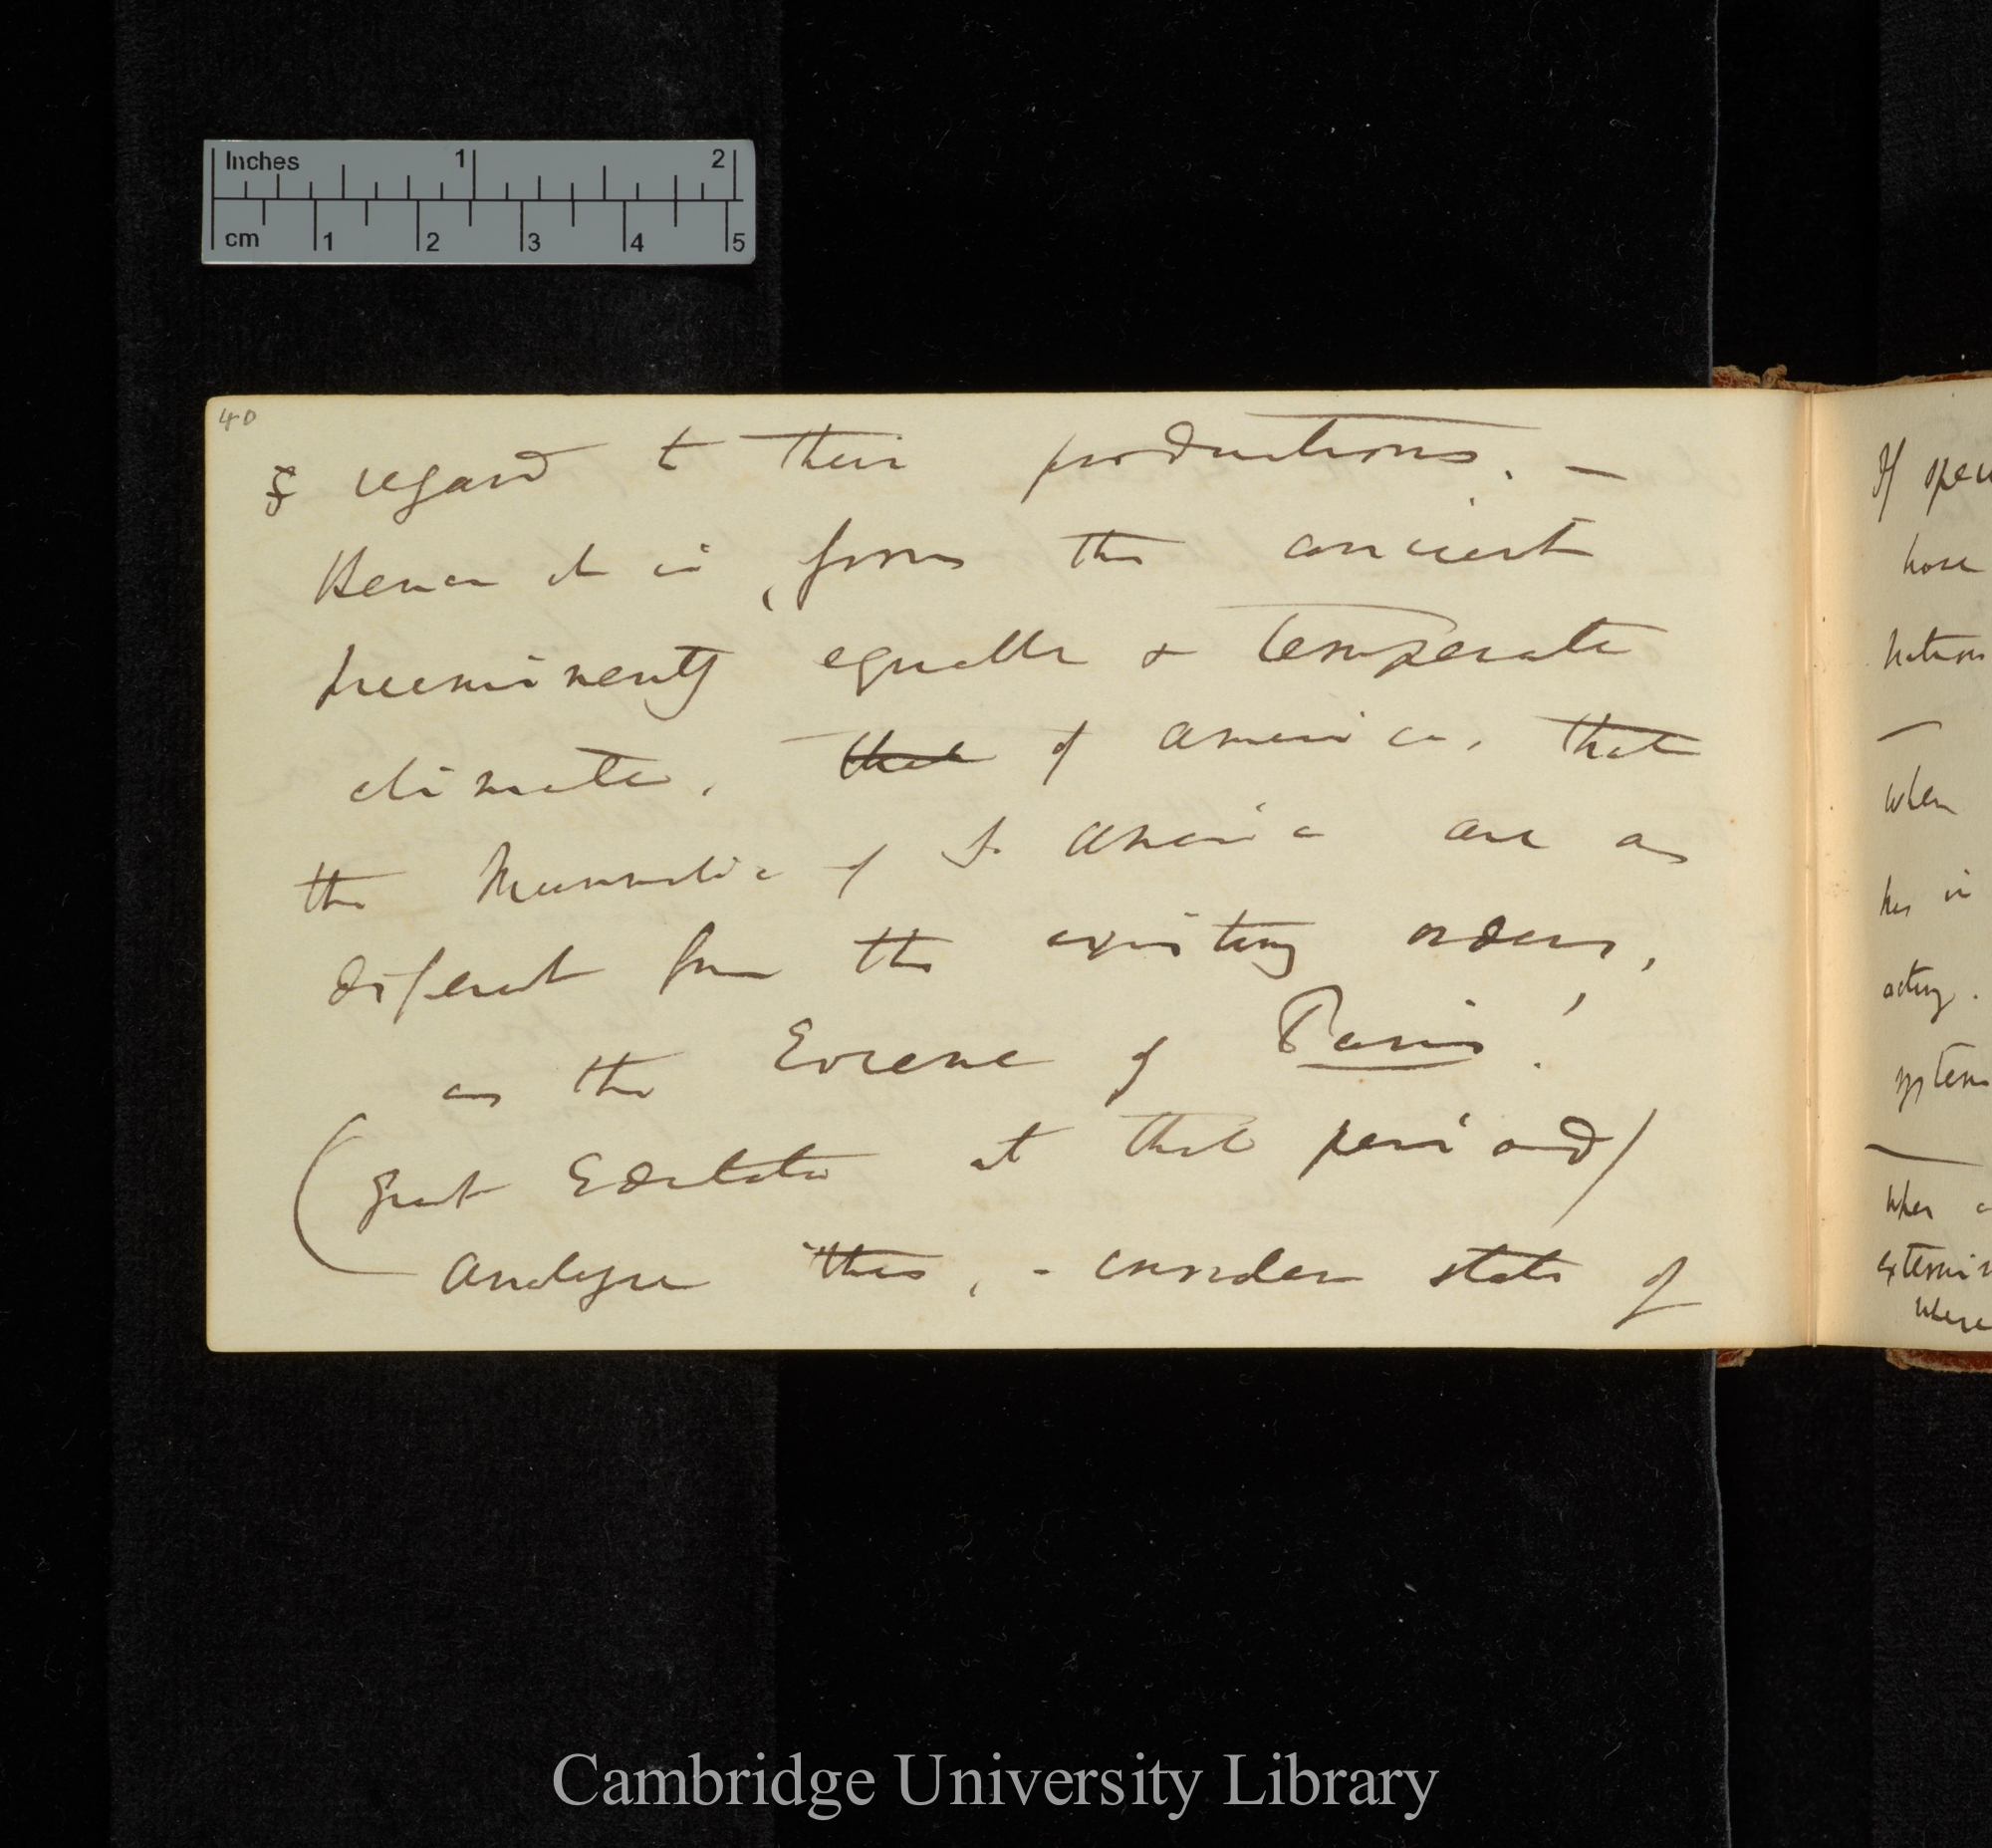 Inches 1 2
cm 1 2 3 4 5
40
& regard to their productions. —
Hence it is, from the ancient
preeminently equable & temperate
climate, that of America, that
the Mammalia of S. America are as
different from the existing orders,
as the Eocene of Paris!
(great Edentata at that period)
Analyse this, - consider state of
If
hose
when
has in
acting.
when
where
Cambridge University Library